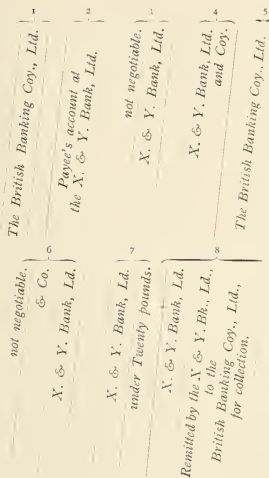 1
The British Banking Coy., Ltd.
2
Payee's account at
the X. & Y. Bank, Ltd.
3
not negotiable.
X. & Y. Bank, Ltd.
4
X. & Y. Bank, Ltd.
and Coy.
5
The British Banking Coy., Ltd.
6
not negotiable.
& Co.
X. & Y. Bank, Ld.
7
X. & Y. Bank, Ld.
under Twenty pounds.
8
X. & Y. Bank, Ld.
Remitted by the X & Y. Bk., Ld.,
to the
British Banking Coy., Ltd.,
for collection.